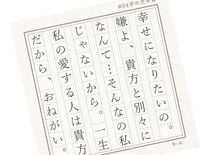 #54字の文学賞
幸せになりたいの。
嫌よ、貴方と別々に
なんて…そんなの私
じゃないから。一生
私の愛する人は貴方
だから、おねがい。